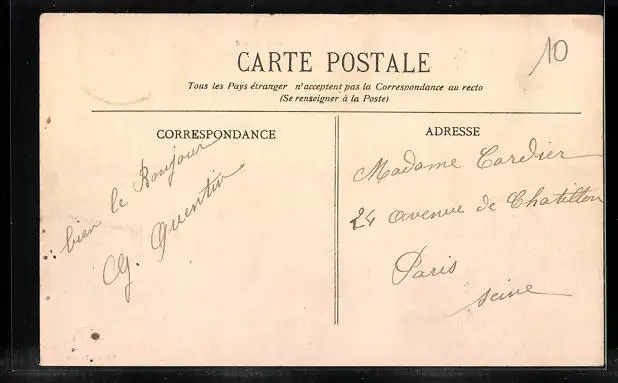 CARTE POSTALE
10
Tous les Pays étranger n'acceptent pas la Correspondance au recto
(Se renseigner à la Poste)
CORRESPONDANCE
bien le Bonjour
G. Quentin
ADRESSE
Madame Cordier
24 avenue de Chatillon
Paris
Seine